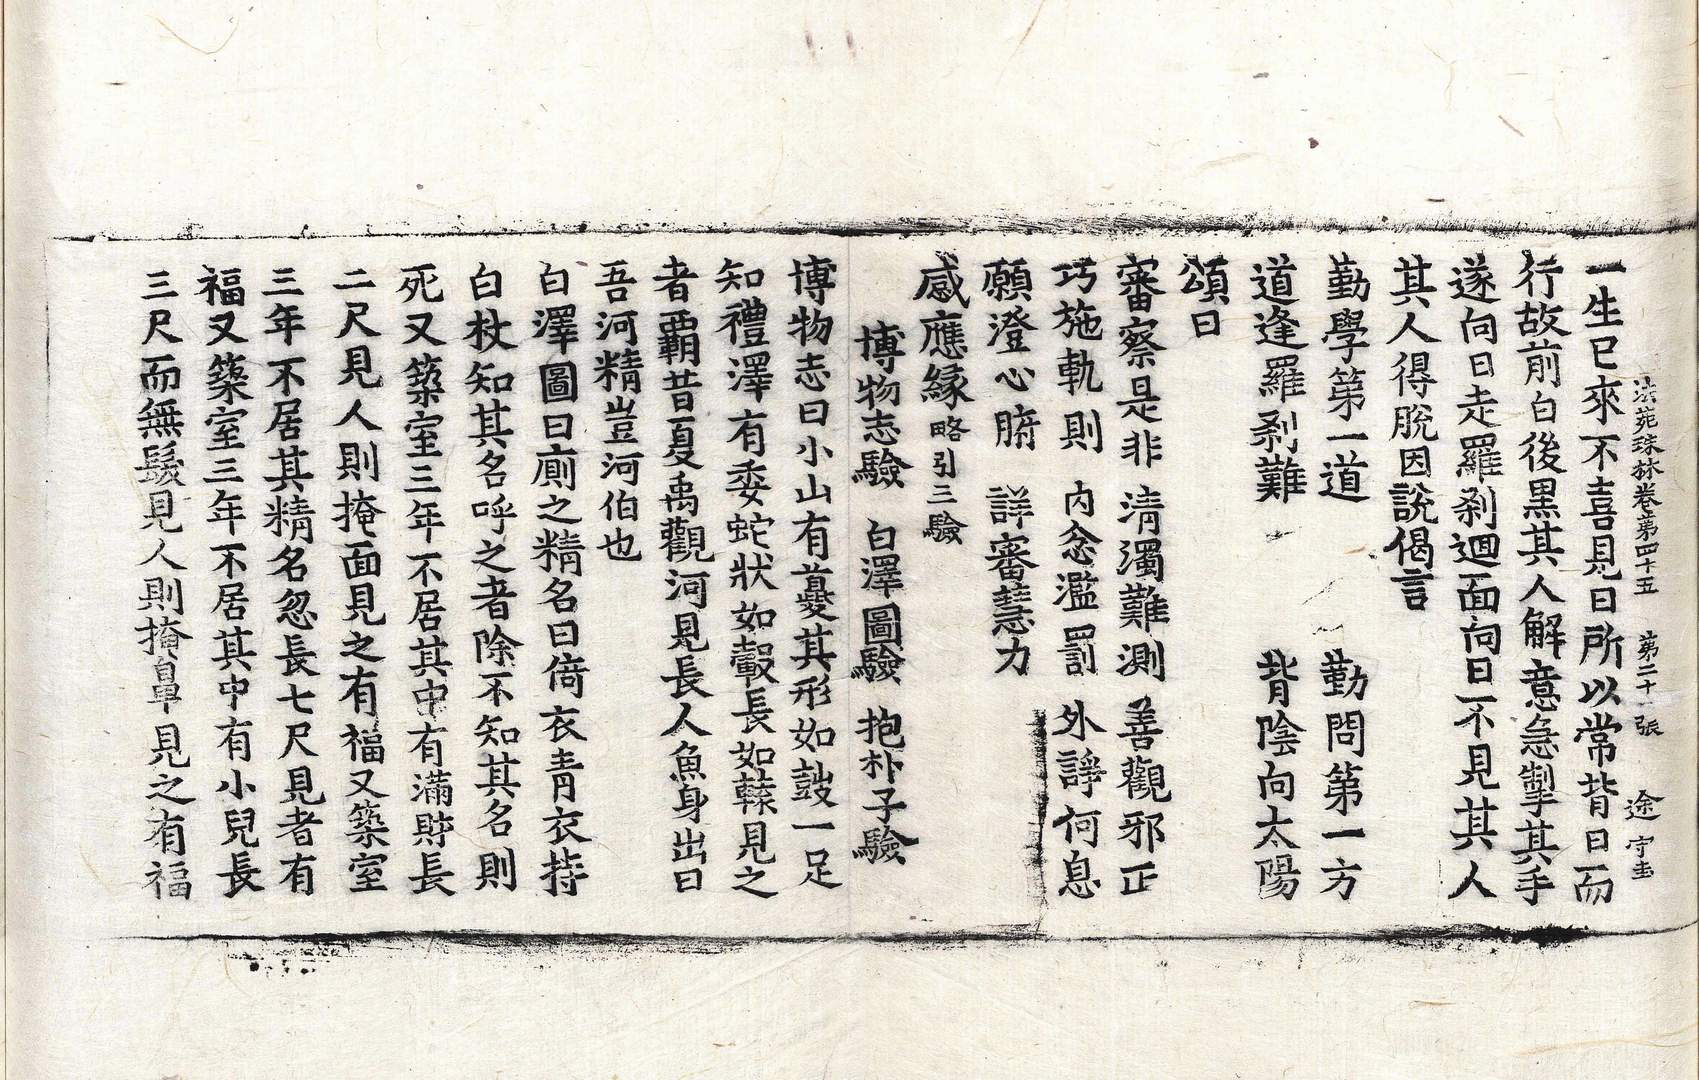 法苑珠林卷第四十五　第二十一張　途　守圭
一生已來不喜見日所以常背日而
行故前白後黑其人解意急掣其手
遂向日走羅刹迴面向日不見其人
其人得脫因說偈言
勤學第一道　勤問第一方
道逢羅刹難　背陰向太陽
頌曰
審察是非　清濁難測　善觀邪正
巧施軌則　內忿濫罰　外諍何息
願澄心腑　詳審慧力
感應緣略引三驗
博物志驗　白澤圖驗　抱朴子驗
博物志曰小山有夔其形如鼓一足
知禮澤有委蛇狀如轂長如轅見之
者霸昔夏禹觀河見長人魚身出曰
吾河精豈河伯也
白澤圖曰廁之精名曰倚衣青衣持
白杖知其名呼之者除不知其名則
死又築室三年不居其中有滿財長
二尺見人則掩面見之有福又築室
三年不居其精名忽長七尺見者有
福又築室三年不居其中有小兒長
三尺而無髮見人則掩鼻見之有福